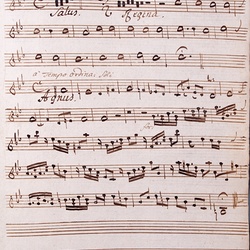 Salus. Regina.
a Tempo ordina: Soli
Agnus.